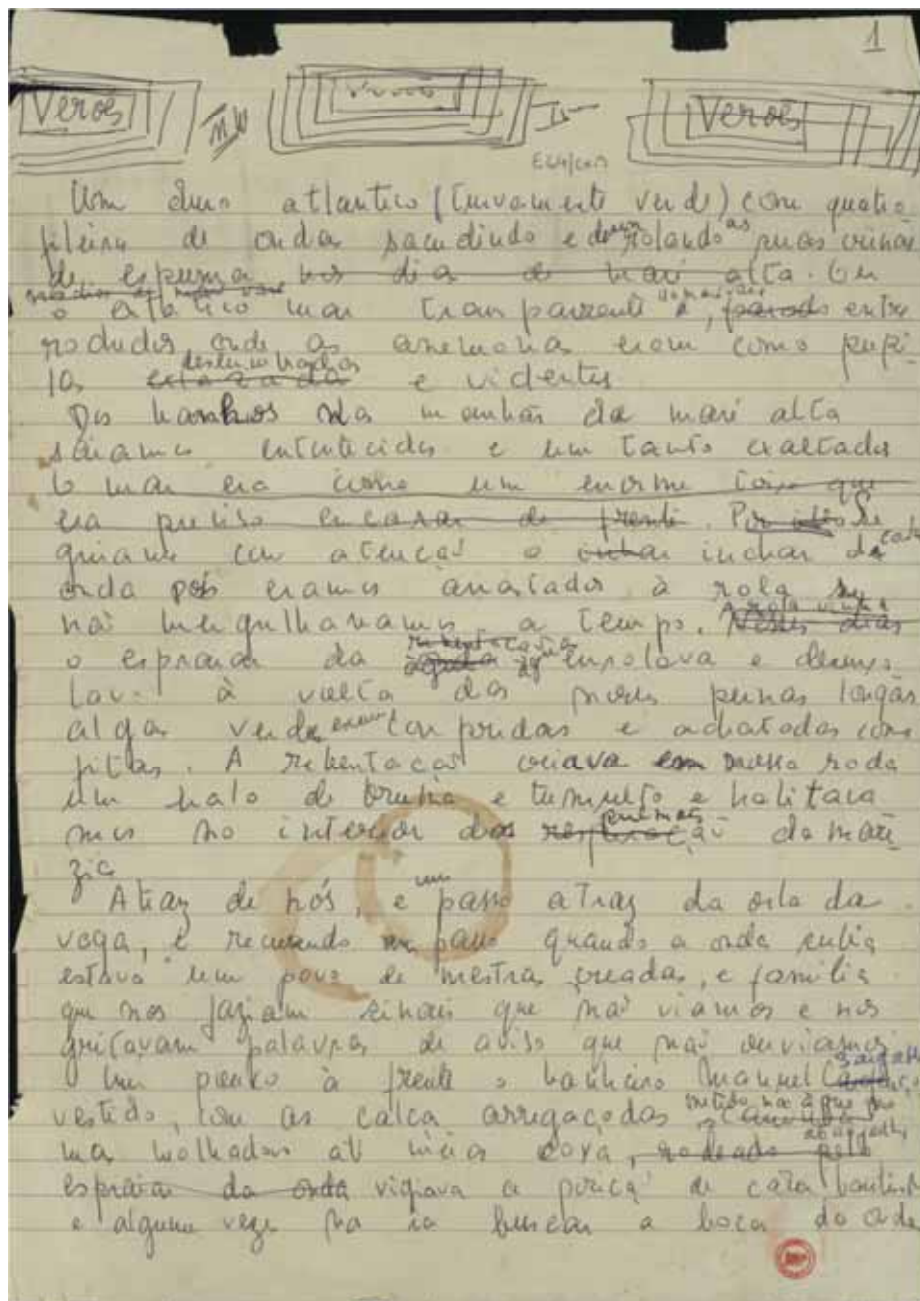 1
Verões
Verões
Verões
Um duro atlantico (turvamente verde) com quatro
fileiras de ondas sacudindo e desenrolando as suas crinas
de espuma nos dias de maré alta. Ou
o extatico mar transparente e, parado entre
rochedos onde as anemonas eram como pupi-
deslumbradas
las e videntes
Dos banhos das manhãs da maré alta
saiamos entontecidos e um tanto exaltados
O mar era como um enorme toiro que
era preciso encarar de frente. Por isso Se
guiamos com atenção o inchar de cada
onda pois eramos arrastados à rola se
não mergulhavamos a tempo. A rola vinha Nestes dias
rebentação
o espraiar da agua enrolava e desenro
lava à volta das nossas pernas longas
algas verdes compridas e achatadas como
fitas. A rebentação criava em nossa roda
um halo de bruma e tumulto e habitava
mos no interior da respiração da maré
zia
Atraz de nós, e um passo atraz da orla da
vaga, e recuando um passo quando a onda subia
estava um povo de mestras, creadas, e familia
que nos faziam sinais que não viamos e nos
gritavam palavras de aviso que não ouviamos
Um pouco à frente o banheiro Manuel
vestido, com as calças arregaçadas metido na agua
mas molhadas até meia coxa, rodeado pelo
espraiar da onda vigiava a porção de cada banhista
e algumas vezes ia buscar a boca da onda